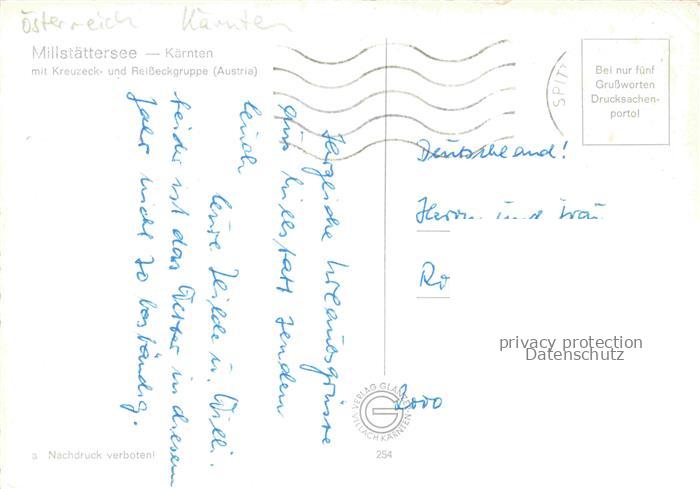 Österreich Kärnten
Millstättersee — Kärnten
mit Kreuzeck- und Reißeckgruppe (Austria)
SPITT
Bei nur fünf
Grußworten
Drucksachen-
porto!
Herzliche Urlaubsgrüsse
aus Millstatt senden
Euch
Eure Hilde u. Willi.
Leider ist das Wetter in diesem
Jahr nicht so beständig.
Deutschland!
Herrn und Frau
Ro
2000
privacy protection
Datenschutz
VERLAG
VILLACH KÄRNTEN
a Nachdruck verboten!
254